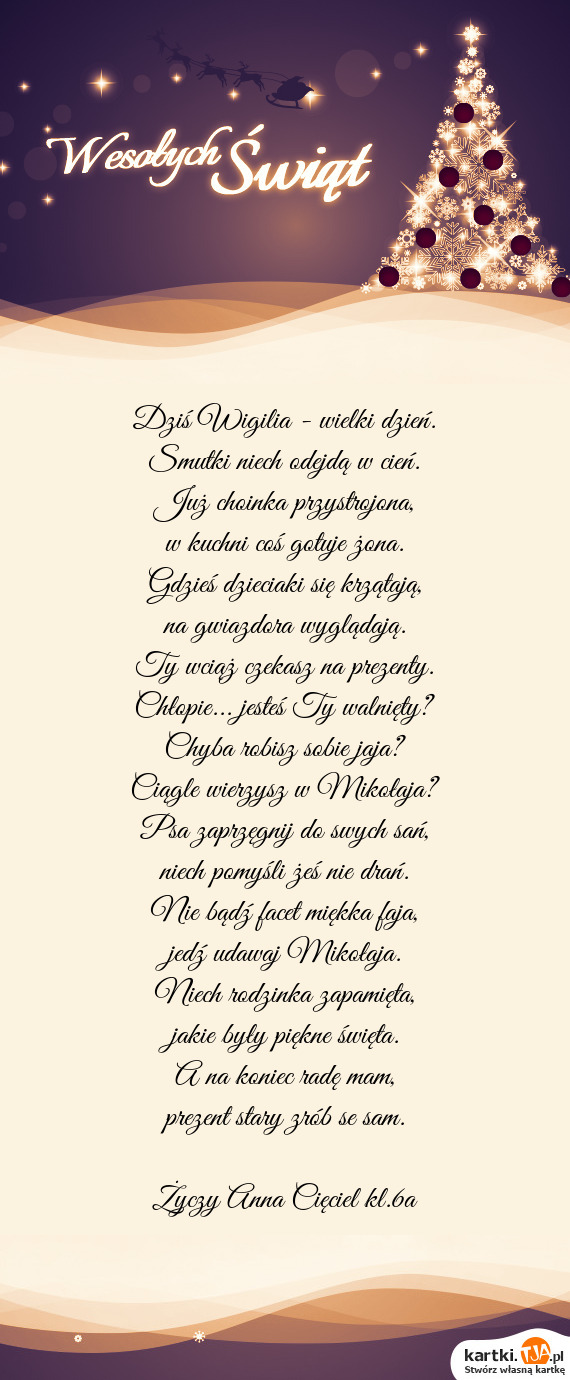 Wesołych Świąt
Dziś Wigilia - wielki dzień.
Smutki niech odejdą w cień.
Już choinka przystrojona,
w kuchni coś gotuje żona.
Gdzieś dzieciaki się krzątają,
na gwiazdora wyglądają.
Ty wciąż czekasz na prezenty.
Chłopie... jesteś Ty walnięty?
Chyba robisz sobie jaja?
Ciągle wierzysz w Mikołaja?
Psa zaprzęgnij do swych sań,
niech pomyśli żeś nie drań.
Nie bądź facet miękka faja,
jedź udawaj Mikołaja.
Niech rodzinka zapamięta,
jakie były piękne święta.
A na koniec radę mam,
prezent stary zrób se sam.
Życzy Anna Cięciel kl.6a
kartki.TJA.pl
Stwórz własną kartkę